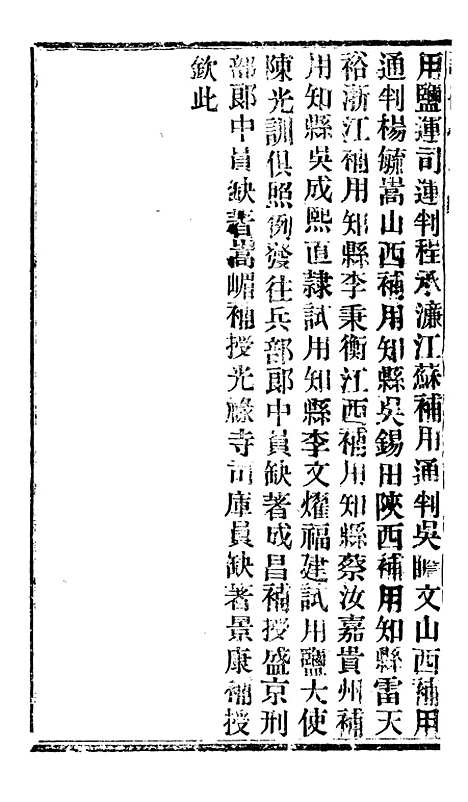 用鹽運司運判程承濂江蘇補用通判吳瞻文山西補用
通判楊毓嵩山西補用知縣吳錫田陝西補用知縣雷天
裕浙江補用知縣李秉衡江西補用知縣蔡汝嘉貴州補
用知縣吳成熙直隸試用知縣李文燿福建試用鹽大使
陳光訓俱照例發往兵部郎中員缺著成昌補授盛京刑
部郎中員缺著嵩崏補授光祿寺司庫員缺著景康補授
欽此